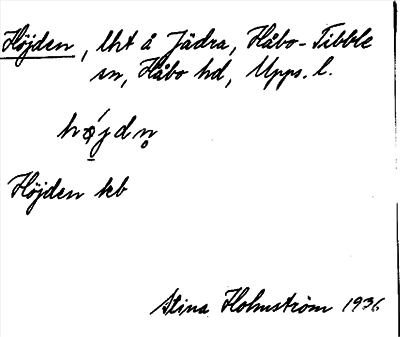 Höjden, lht å Jädra, Håbo-Tibble
sn, Håbo hd, Upps. l.
hǿ̠jdn̥
Höjden kb
Stina Holmström 1936